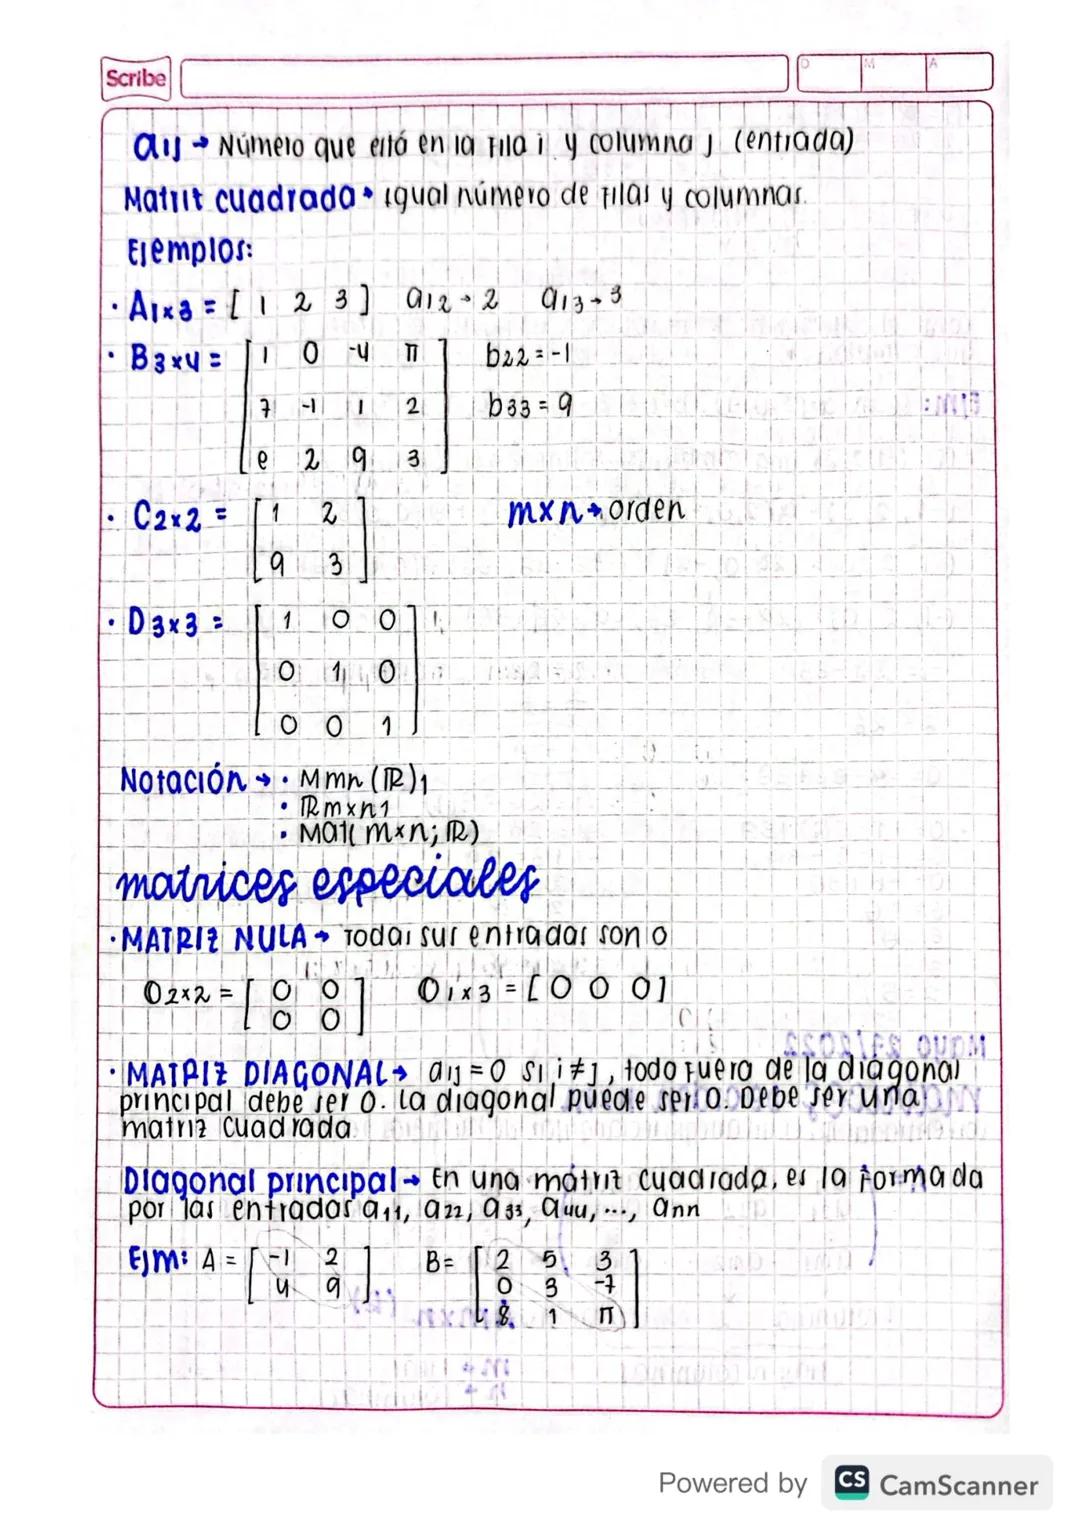 Scribe
D M A
aij → Número que está en la fila i y columna j (entrada)
Matriz cuadrada → igual número de filas y columnas.
Ejemplos:
· A1x3 = [ 1 2 3 ] a12 → 2 a13 → 3
· B3x4 = [ 1 0 -4 π b22 = -1
7 -1 1 2 b33 = 9
e 2 9 3 ]
· C2x2 = [ 1 2 mxn → orden
9 3 ]
· D3x3 = [ 1 0 0
0 1 0
0 0 1 ]
Notación → · Mmn (ℝ),
· ℝmxn,
· Mat( mxn; ℝ)
matrices especiales
· MATRIZ NULA → Todas sus entradas son 0
O2x2 = [ 0 0 O1x3 = [ 0 0 0 ]
0 0 ]
· MATRIZ DIAGONAL → aij = 0 si i ≠ j, todo fuera de la diágonal
principal debe ser 0. La diagonal puede ser 0. Debe ser una
matriz cuadrada
Diagonal principal → En una mátriz cuadrada, es la formada
por las entradas a11, a22, a33, a44, ..., ann
Ejm: A = [ -1 2 B = [ 2 5 3
4 9 ] 0 3 -7
8 1 π ]
Powered by CS CamScanner